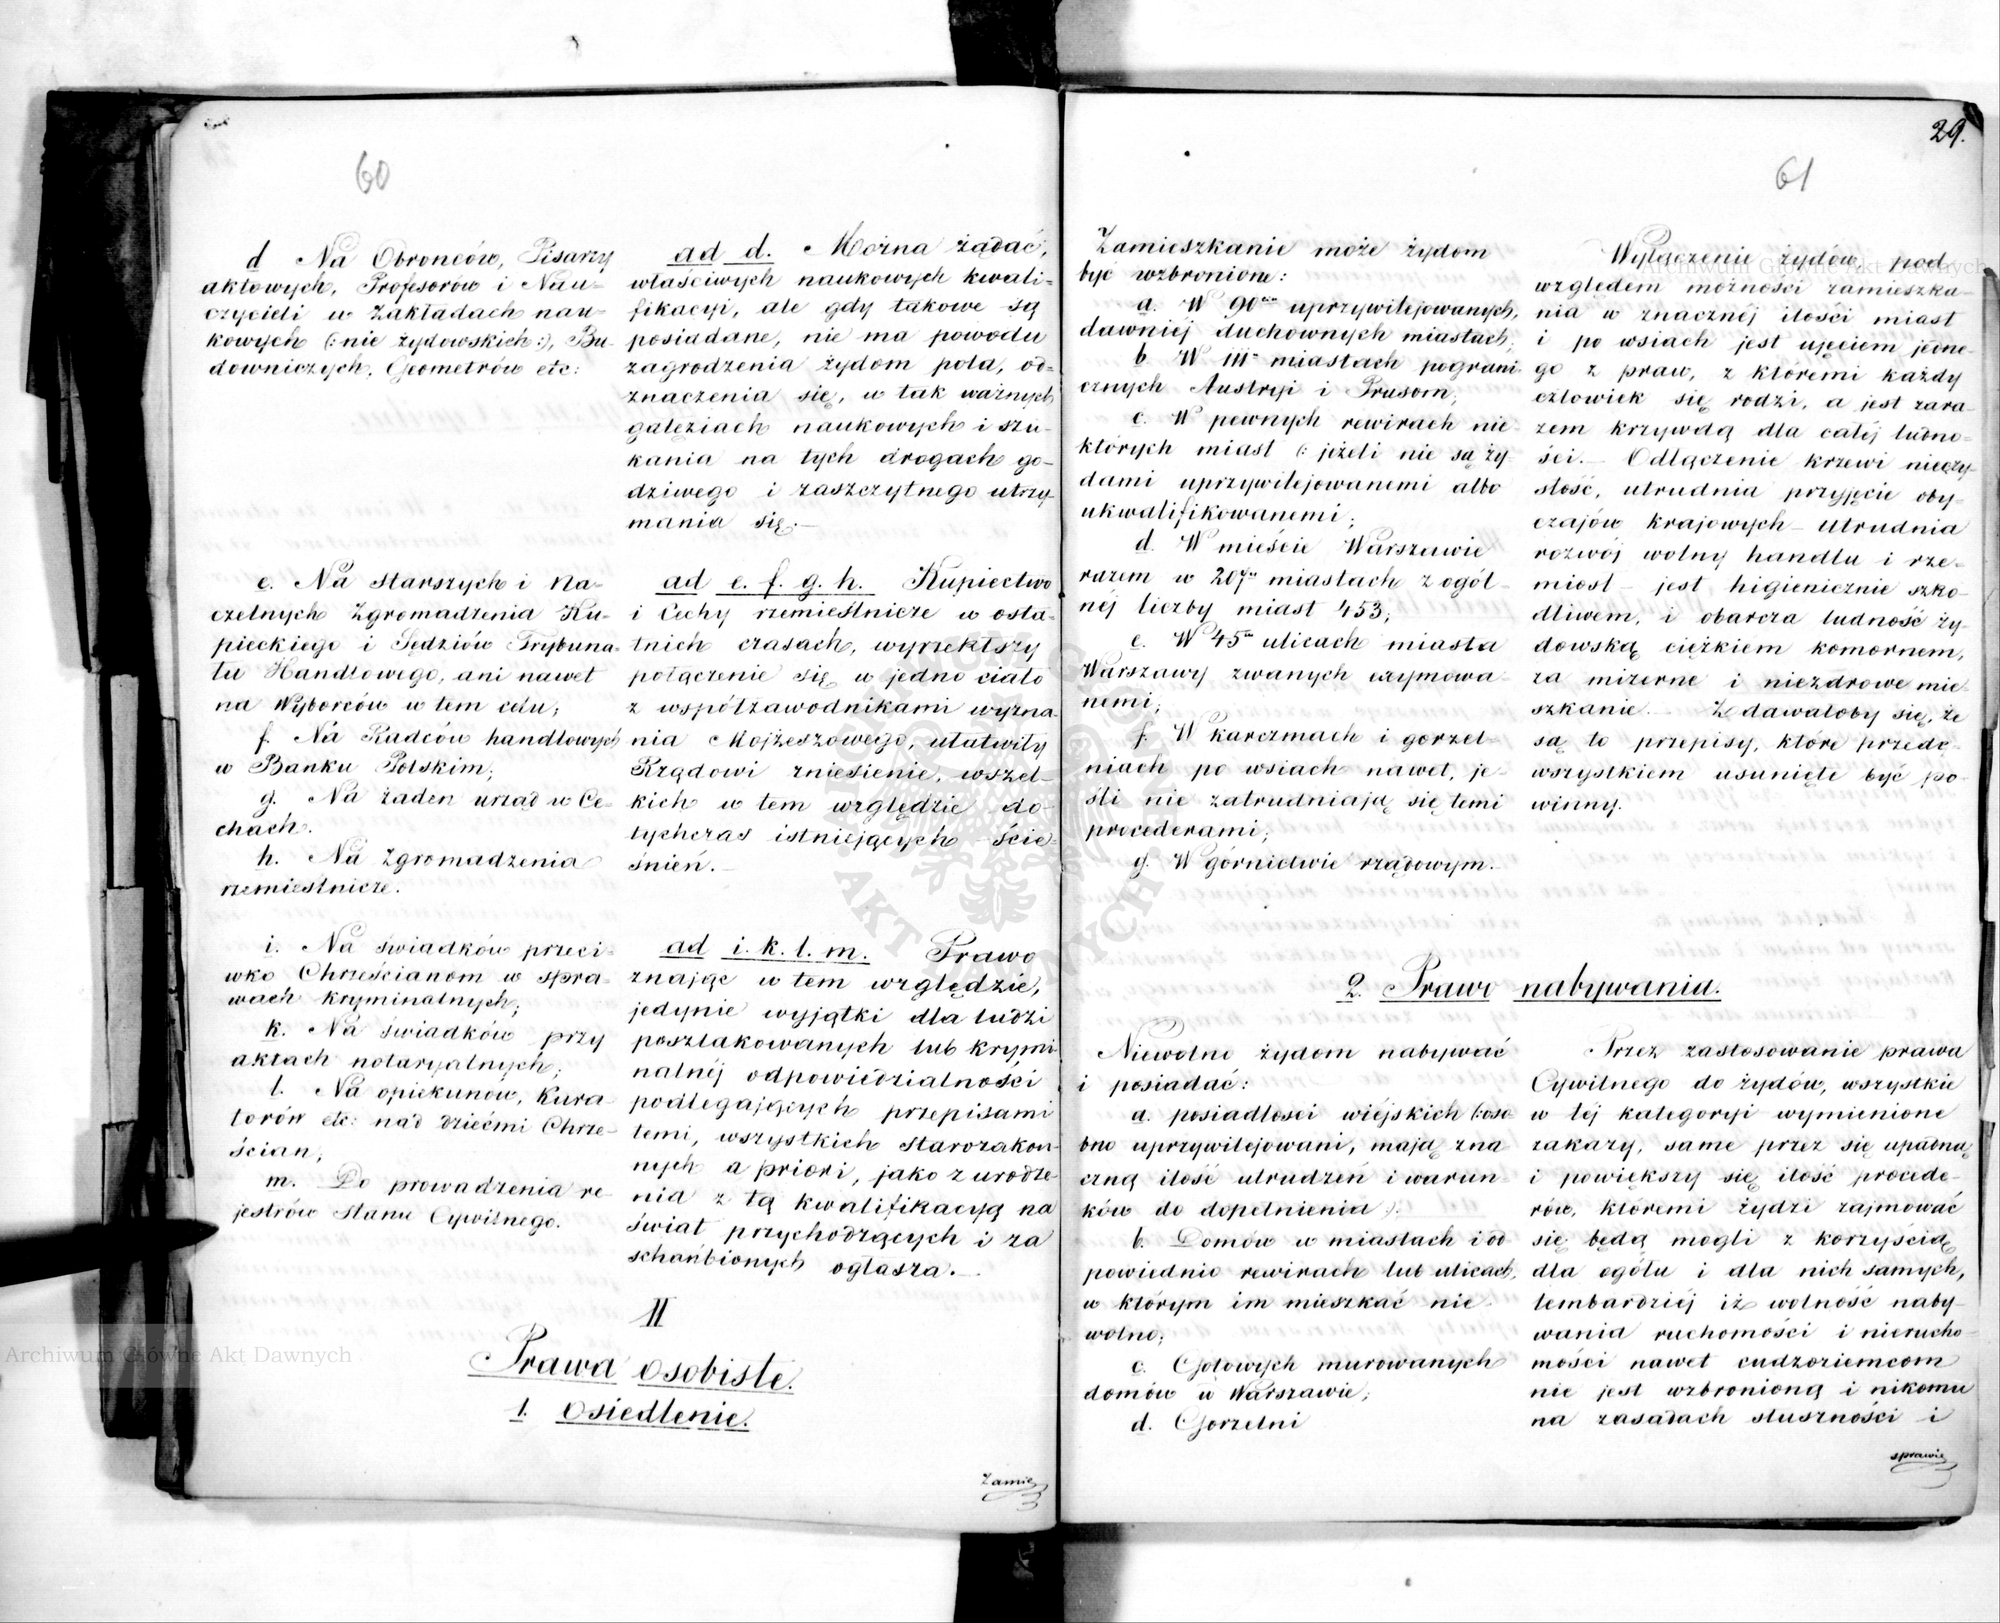 60
d Na Obrońców, Pisarzy
aktowych, Profesorów i Nau-
czycieli w Zakładach nau-
kowych (: nie żydowskich :), Bu-
downiczych, Geometrów etc:
e. Na starszych i Na-
czelnych Zgromadzenia Ku-
pieckiego i Sędziów Trybuna-
łu Handlowego, ani nawet
na Wyborców w tem celu;
f. Na Radców handlowych
w Banku Polskim;
g. Na żaden urząd w Ce-
chach.
h. Na Zgromadzenia
rzemieślnicze.
i. Na świadków przeci-
wko Chrześcianom w spra-
wach kryminalnych;
k. Na świadków przy
aktach notaryalnych;
l. Na opiekunów, Kura-
torów etc: nad dziećmi Chrze-
ścian;
m. Do prowadzenia re-
jestrów Stanu Cywilnego.
ad d. Można żądać,
właściwych naukowych kwali-
fikacyi, ale gdy takowe są
posiadane, nie ma powodu
zagrodzenia żydom pola, od-
znaczenia się, w tak ważnych
gałęziach naukowych i szu-
kania na tych drogach go-
dziwego i zaszczytnego utrzy-
mania się.—
ad e. f. g. h. Kupiectwo
i Cechy rzemieślnicze w osta-
tnich czasach, wyrzekłszy
połączenie się w jedno ciało
z współzawodnikami wyzna-
nia Mojżeszowego, ułatwiły
Rządowi zniesienie, wszel-
kich w tem względzie do-
tychczas istniejących ście-
śnień.—
ad i. k. l. m. Prawo
znając w tem względzie,
jedynie wyjątki dla ludzi
poszlakowanych lub krymi-
nalnéj odpowiedzialności
podlegających przepisami
temi, wszystkich Starozakon-
nych a priori, jako z urodze-
nia z tą kwalifikacyą na
świat przychodzących i za
schańbionych ogłasza.—
II
Prawa osobiste.
1. Osiedlenie.
Zamie
29.
61
Zamieszkanie może żydom
być wzbronione:
a. W 90ciu uprzywilejowanych,
dawniéj duchownych miastach;
b. W 111 miastach pograni-
cznych Austryi i Prusom;
c. W pewnych rewirach nie-
których miast (: jeżeli nie są ży-
dami uprzywilejowanemi albo
ukwalifikowanemi;
d. W mieście Warszawie
razem w 207u miastach z ogól-
néj liczby miast 453;
e. W 45u ulicach miasta
Warszawy zwanych exymowa-
nemi;
f. W karczmach i gorzel-
niach po wsiach nawet, je-
śli nie zatrudniają się temi
procederami;
g. W górnictwie rządowym.—
Wyłączenie żydów pod
względem możności zamieszka-
nia w znacznéj ilości miast
i po wsiach jest ujęciem jedne-
go z praw, z któremi każdy
człowiek się rodzi, a jest zara-
zem krzywdą dla całéj ludno-
ści.— Odłączenie krzewi nieczy-
stość, utrudnia przyjęcie oby-
czajów krajowych — utrudnia
rozwój wolny handlu i rze-
miosł — jest higienicznie szko-
dliwem, i obarcza ludność ży-
dowską ciężkiem komornem,
za mizerne i niezdrowe mie-
szkanie.— Zdawałoby się, że
są to przepisy, które przede-
wszystkiem usunięte być po-
winny.
2. Prawo nabywania.
Niewolno żydom nabywać
i posiadać:
a. posiadłości wiejskich (: oso-
bno uprzywilejowani, mają zna-
czną ilość utrudzeń i warun-
ków do dopełnienia :).
b. Domów w miastach i od-
powiednio rewirach lub ulicach,
w którym im mieszkać nie-
wolno;
c. Gotowych murowanych
domów w Warszawie;
d. Gorzelni
Przez zastosowanie prawa
Cywilnego do żydów, wszystkie
w téj kategoryi wymienione
zakazy, same przez się upadną
i powiększy się ilość procede-
rów, któremi żydzi zajmować
się będą mogli z korzyścią
dla ogółu i dla nich samych,
tembardziéj iż wolność naby-
wania ruchomości i nierucho-
mości nawet cudzoziemcom
nie jest wzbronioną i nikomu
na zasadach słuszności i
sprawie
Archiwum Główne Akt Dawnych
Archiwum Główne Akt Dawnych